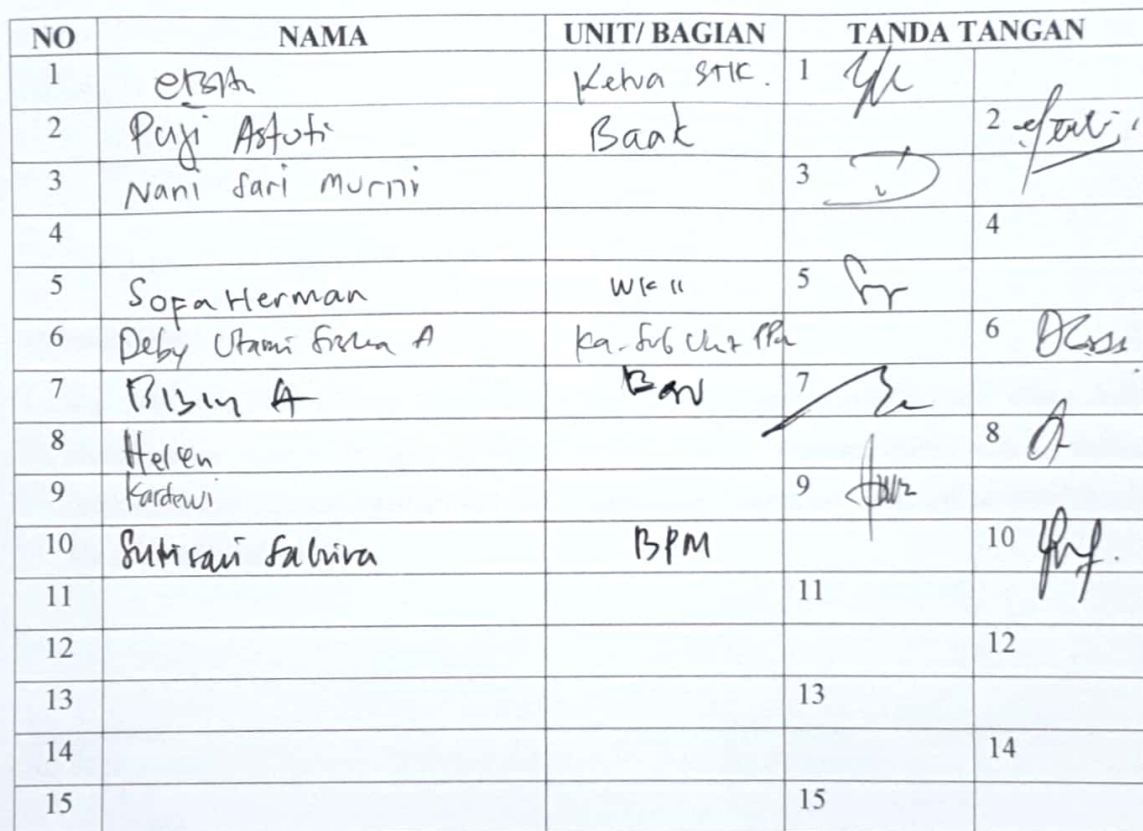 NO NAMA UNIT/ BAGIAN TANDA TANGAN
1 Ketua STIK. 1
2 Puji Astuti Baak 2
3 Nani Sari Murni 3
4 4
5 Sofa Herman WK II 5
6 Deby Utami Siska A Ka. Sub Unit PPM 6
7 A 7
8 Helen 8
9 Kardewi 9
10 BPM 10
11 11
12 12
13 13
14 14
15 15